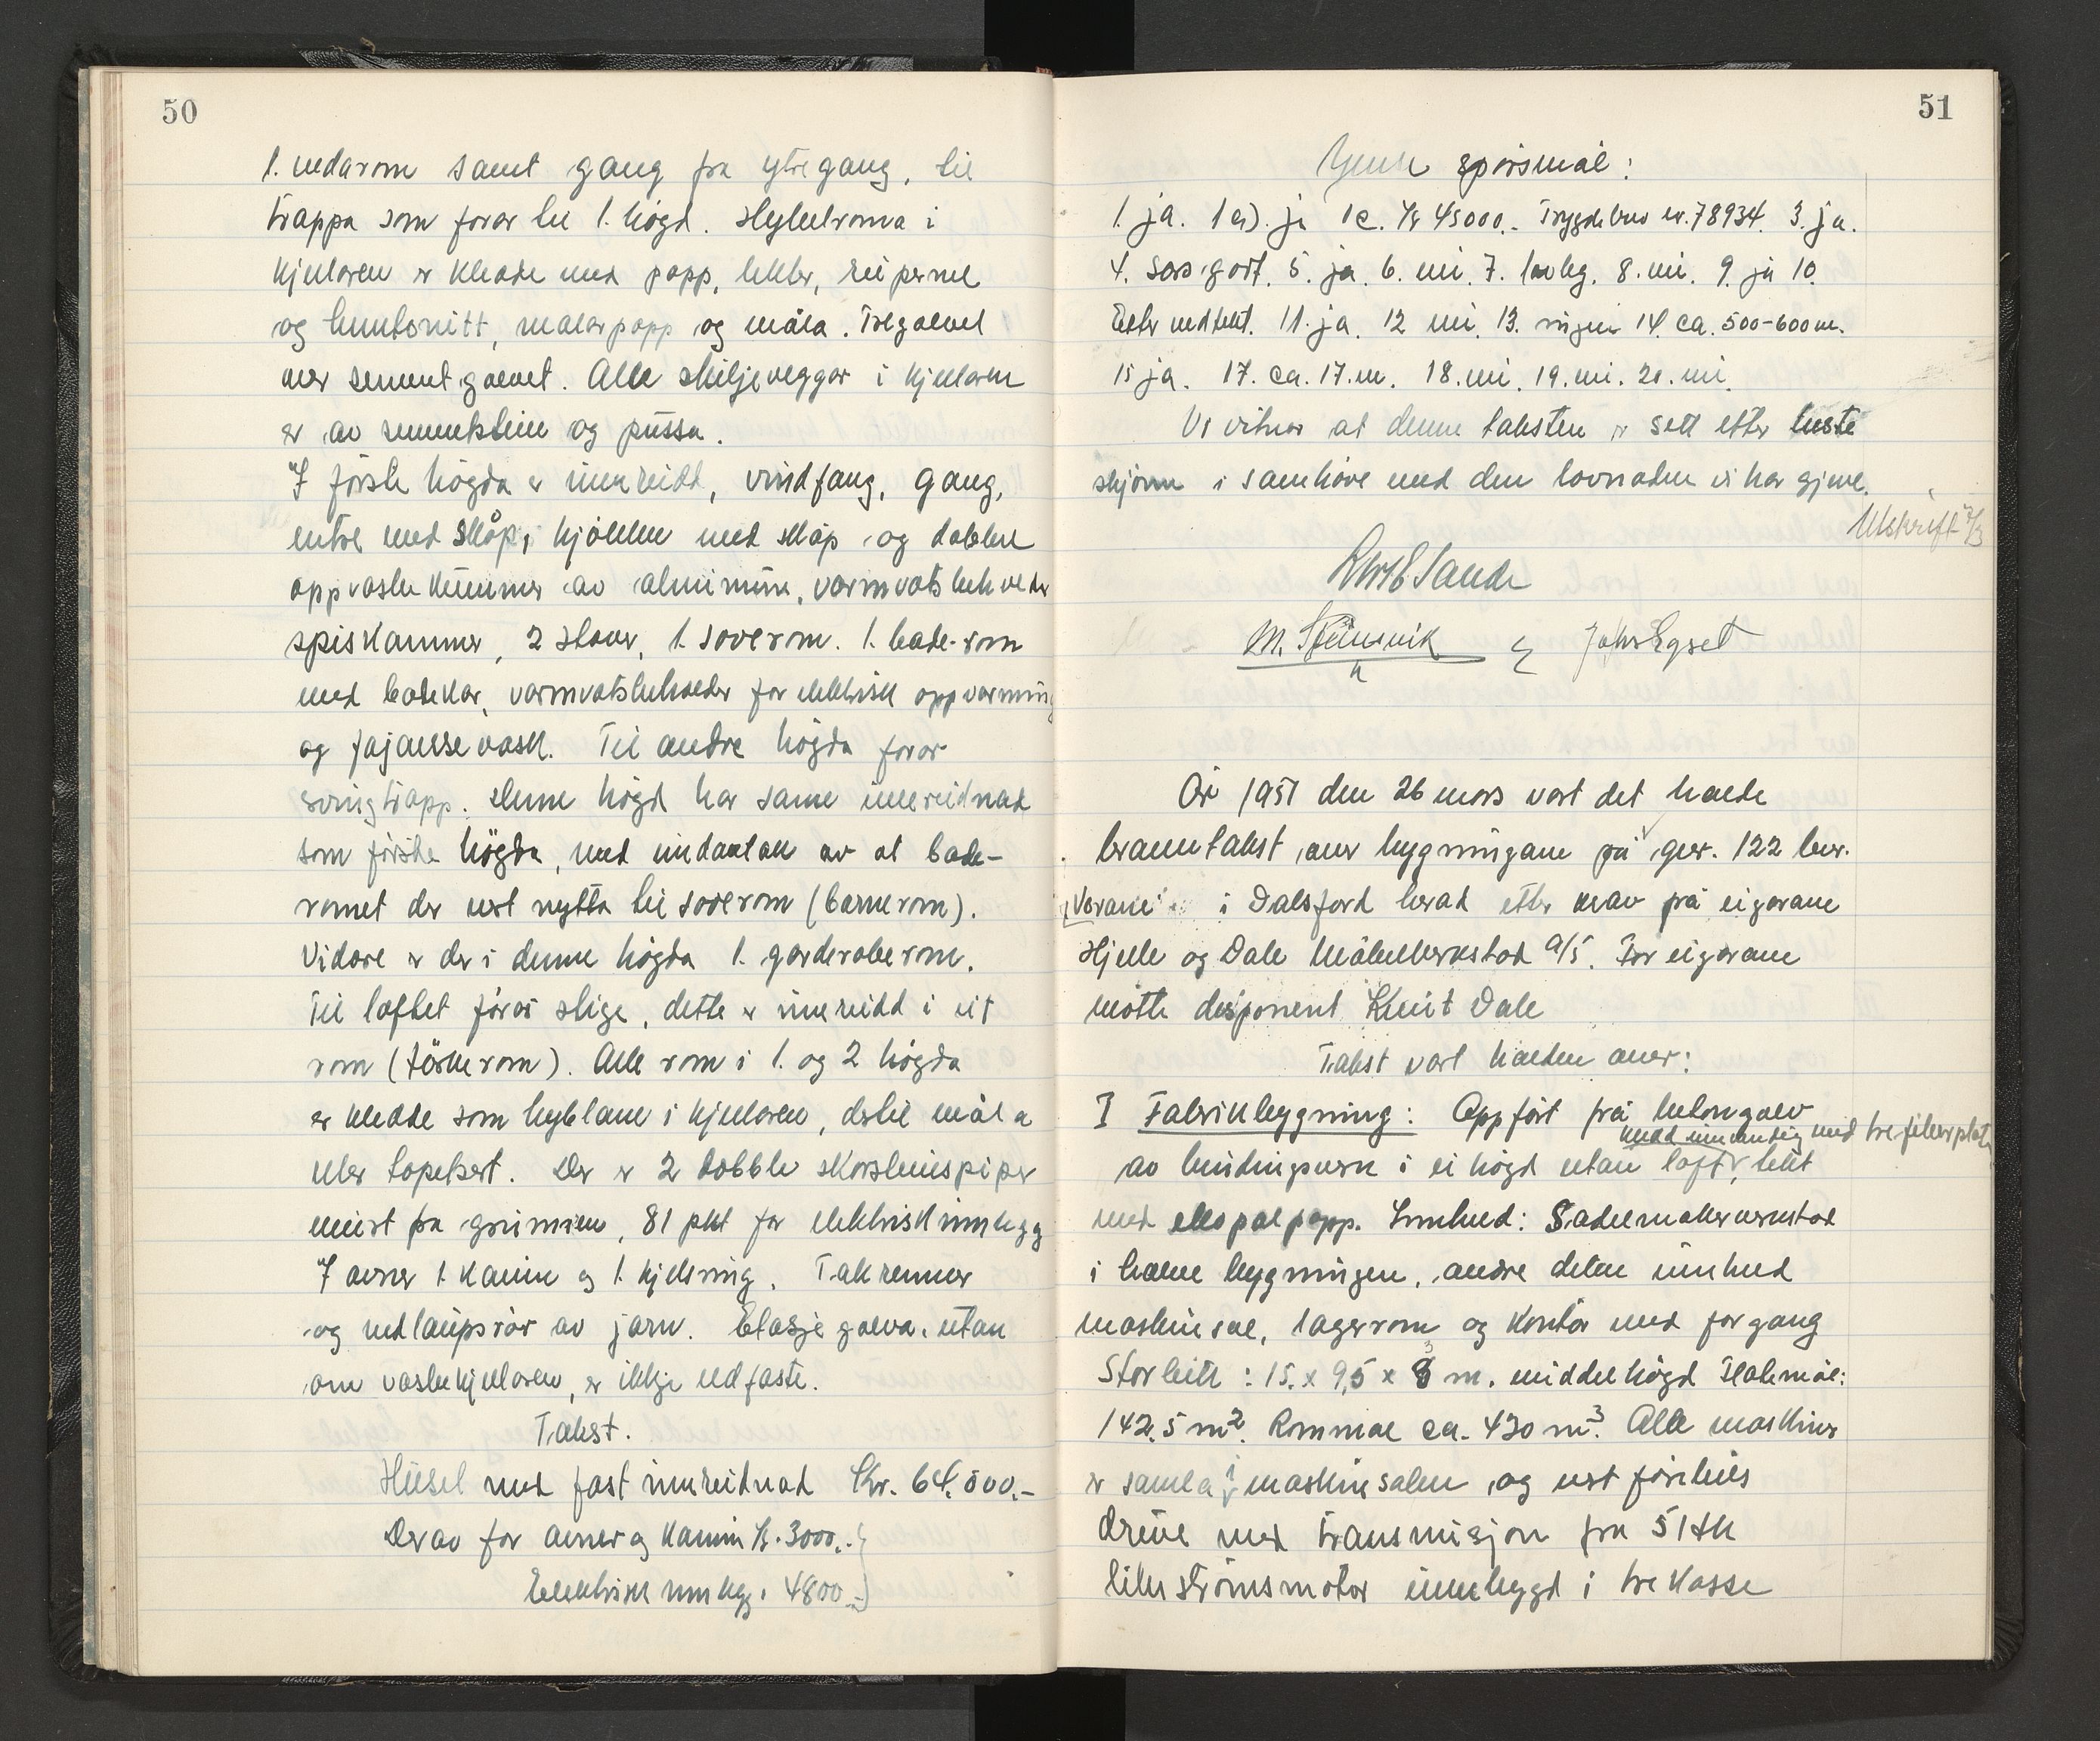 50
1. vedarom samt gang fra ytregang, til
trappa som förar til 1. högd. Hybelroma i
kjellaren er kledde med papp, lekter, reipernel
og huntonitt, malarpapp og måla. Tregolvet
over sementgolvet. Alle skiljeveggar i kjellaren
er av sementstein og pussa.
I förste högda er innreidd, vindfang, gang,
entre med skåp, kjökken med skåp og dobbel
oppvaskkummer av aluminium, varmvatsbeholder
spiskammer, 2 stover, 1. soverom. 1. bade-rom
med badekar, varmvatsbeholder for elektrisk oppvarming
og fajansevask. Til andre högda förar
svingtrapp. Denne högd har same innreidnad
som förske högda, med undantak av at bade-
romet der vert nytta til soverom (barnerom).
Vidare er der i denne högda 1. garderoberom.
Til loftet förar stige, dette er innreidd i eit
rom (törkerom). Alle rom i 1. og 2 högda
er kledde som hyblane i kjellaren, dertil måla
eller tapetsert. Der er 2 dobble skorsteinspiper
murt fra grunnen, 81 pkt for elektrisk innlegg
7 omner 1. kamin og 1. kjelring. Takrenner
og nedlaupsrör av jarn. Etasjegolva, utan
om vaskekjellaren, er ikkje eldfaste.
Takst.
Huset med fast innreidnad Kr. 64.500.-
Derav for omner og kamin kr. 3000.-
Elektrisk innlegg. 4800.-
51
Ymse spörsmål:
1. ja. 1 a). ja 1c. Kr 45000.- Trygdebrev nr. 78934. 3. ja.
4. Sers godt. 5. ja. 6. nei. 7. lovleg. 8. nei. 9. ja 10.
Etter vedtekt. 11. ja. 12 nei. 13. ingen 14. ca. 500-600 m.
15 ja. 17. ca. 17. m. 18. nei. 19. nei. 20. nei.
Vi vitnar at denne taksten er sett etter beste
skjönn i samhöve med den lovnaden vi har gjeve.
Utskrift 7/3
Sande
M. Steinsvik Johs Egset
År 1951 den 26 mars vart det halde
branntakst over bygningane på gnr. 122 bnr.
i Dalsfjord herad etter krav frå eigarane
Hjelle og Dale Möbelverkstad A/S. For eigarane
mötte disponent Knut Dale
Takst vart halden over:
I Fabrikbygning: Oppfört frå betongolv
kledd innvendig med tre-fiberplater
av bindingsverk i ei högd utan loft, tekt
med papp. Innhald: Sadelmakerverkstad
i halve bygningen, andre delen innheld
maskinsal, lagerrom og kontor med forgang
Storleik: 15. x 9,5 x 3 m. middelhögd Flatemål:
142,5 m². Rommål ca. 430 m³. Alle maskiner
er samla i maskinsalen og vert förelöis
drevne med transmisjon fra 5 Hk
likeströmsmotor innebygd i trekasse